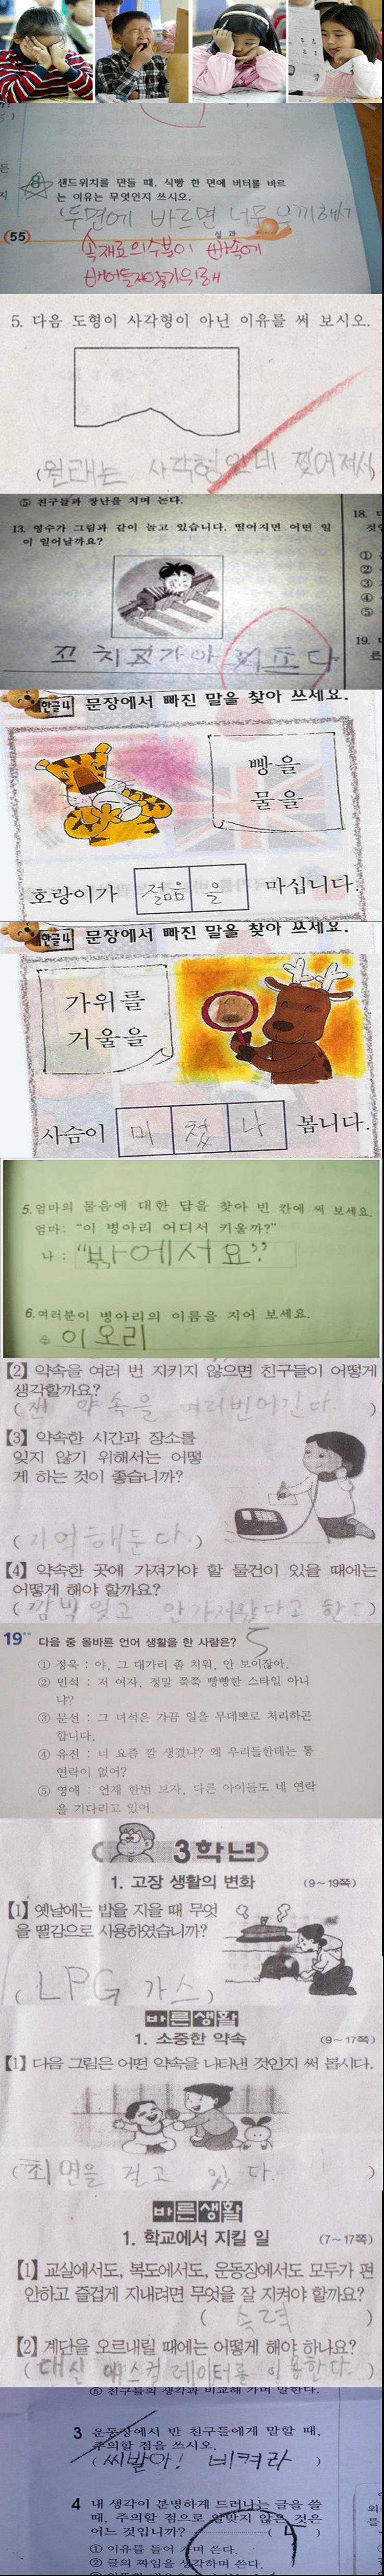 8 샌드위치를 만들 때, 식빵 한 면에 버터를 바르
는 이유는 무엇인지 쓰시오.
(두면에 바르면 너무 느끼해서
실 과
(55)
속재료의 수분이 빵속에
배어들지않기위해
5. 다음 도형이 사각형이 아닌 이유를 써 보시오.
(원래는 사각형인데 찢어져서)
⑤ 친구들과 장난을 치며 논다.
13. 영수가 그림과 같이 놀고 있습니다. 떨어지면 어떤 일
이 일어날까요?
18.
①
②
③
④
⑤
19.
한글4 문장에서 빠진 말을 찾아 쓰세요.
빵을
물을
호랑이가 젊음을 마십니다.
한글4 문장에서 빠진 말을 찾아 쓰세요.
가위를
거울을
사슴이 미쳤나 봅니다.
5. 엄마의 물음에 대한 답을 찾아 빈 칸에 써 보세요.
엄마: "이 병아리 어디서 키울까?"
나 : "밖에서요"
6. 여러분이 병아리의 이름을 지어 보세요.
이오리
【2】 약속을 여러 번 지키지 않으면 친구들이 어떻게
생각할까요?
(쟨 약속을 여러번어긴다. )
【3】 약속한 시간과 장소를
잊지 않기 위해서는 어떻
게 하는 것이 좋습니까?
(기억해둔다.)
【4】 약속한 곳에 가져가야 할 물건이 있을 때에는
어떻게 해야 할까요?
(깜박잊고 안가져왔다고 한다)
19 다음 중 올바른 언어 생활을 한 사람은? 5
① 정욱 : 야, 그 대가리 좀 치워, 안 보이잖아.
② 민석 : 저 여자, 정말 쭉쭉 빵빵한 스타일 아니
냐?
③ 문선 : 그 녀석은 가끔 일을 무데뽀로 처리하곤
합니다.
④ 유진 : 너 요즘 깔 생겼냐? 왜 우리들한테는 통
연락이 없어?
⑤ 영애 : 언제 한번 보자, 다른 아이들도 네 연락
을 기다리고 있어.
3학년
1. 고장 생활의 변화 (9~19쪽)
【1】 옛날에는 밥을 지을 때 무엇
을 땔감으로 사용하였습니까?
(LPG 가스)
바른생활
1. 소중한 약속 (9~17쪽)
【1】 다음 그림은 어떤 약속을 나타낸 것인지 써 봅시다.
(최면을 걸고 있다. )
바른생활
1. 학교에서 지킬 일 (7~17쪽)
【1】 교실에서도, 복도에서도, 운동장에서도 모두가 편
안하고 즐겁게 지내려면 무엇을 잘 지켜야 할까요?
( 속력 )
【2】 계단을 오르내릴 때에는 어떻게 해야 하나요?
(대신 에스컬레이터를 이용한다.)
⑤ 친구들의 생각과 비교해 가며 말한다.
3 운동장에서 반 친구들에게 말할 때,
주의할 점을 쓰시오.
(씨발아! 비켜라 )
4 내 생각이 분명하게 드러나는 글을 쓸
때, 주의할 점으로 알맞지 않은 것은
어느 것입니까? ( 4 )
① 이유를 들어 가며 쓴다.
② 글의 짜임을 생각하며 쓴다.